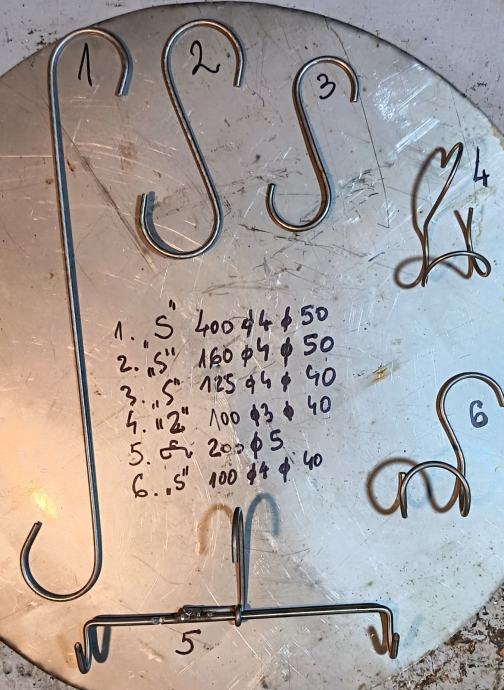 1
2
3
4
1. „S" 400 ϕ4 ϕ 50
2. „S" 160 ϕ4 ϕ 50
3. „S" 125 ϕ4 ϕ 40
4. "2" 100 ϕ3 ϕ 40
5. 200 ϕ5
6. „S" 100 ϕ4 ϕ 40
6
5